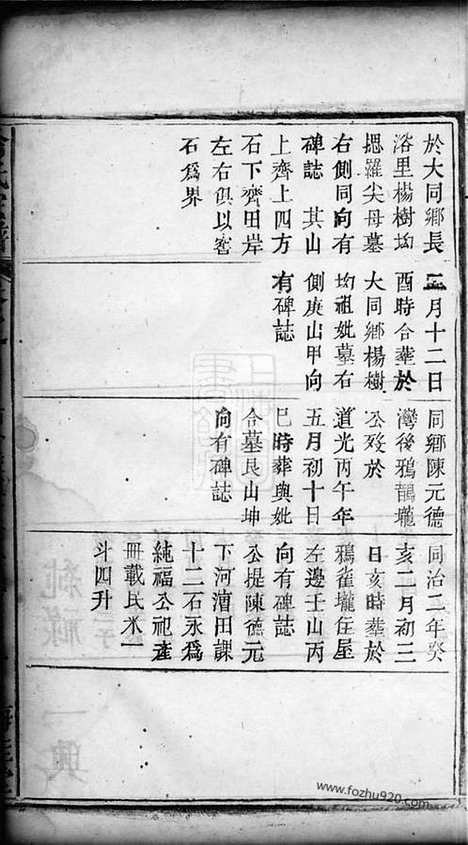 於大同鄉長
浴里楊樹坳
摁羅尖母墓
右側同向有
碑誌　其山
上齊上四方
石下齊田岸
左右俱以窖
石為界
月十二日
酉時合葬於
大同鄉楊樹
坳祖妣墓右
側庚山甲向
有碑誌
同鄉陳元德
灣後鴉鵲壠
公歿於
道光丙午年
五月初十日
巳時葬與妣
合墓艮山坤
向有碑誌
同治二年癸
亥二月初三
日亥時葬於
鴉雀壠住屋
左邊壬山丙
向有碑誌
公提陳德元
下河漕田課
十二石永為
純福公祀產
冊載民米一
斗四升
www.fozhu920.com